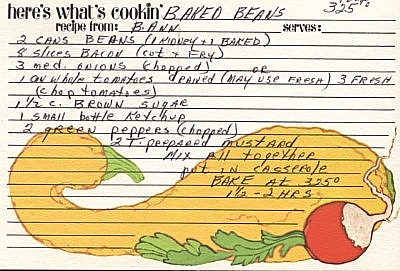 here's what's cookin' BAKED BEANS 325°
recipe from: B. ANN serves:
2 CANS BEANS (1 MONEY + 1 BAKED)
8 SLICES BACON (cut + FRY)
3 med. ONIONS (chopped) OR
1 can whole tomatoes drained (MAY USE FRESH) 3 FRESH
(chop tomatoes)
1 1/2 C. BROWN SUGAR
1 small bottle Ketchup
2 green peppers (chopped)
2 T. prepared mustard
Mix all together
put in casserole
BAKE AT 325°
1 1/2 - 2 HRS.